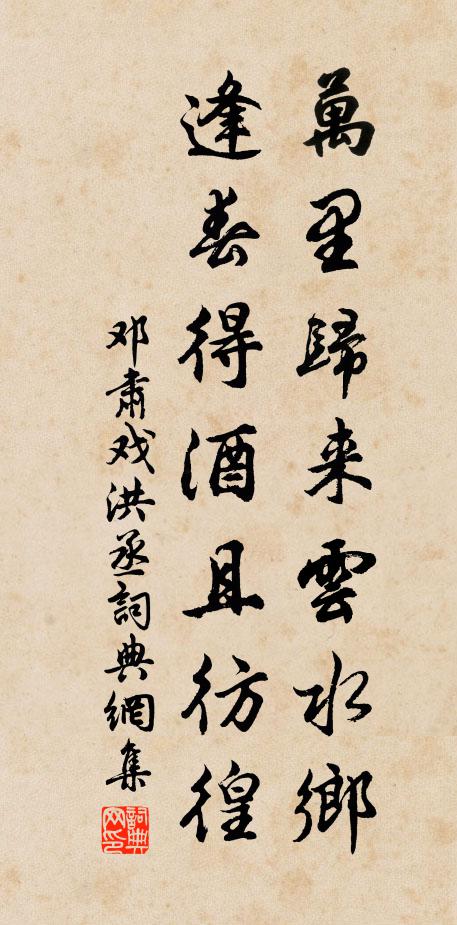 萬里歸来雲水鄉
逢春得酒且彷徨
邓肅戏洪丞詞典網集
詞典网印